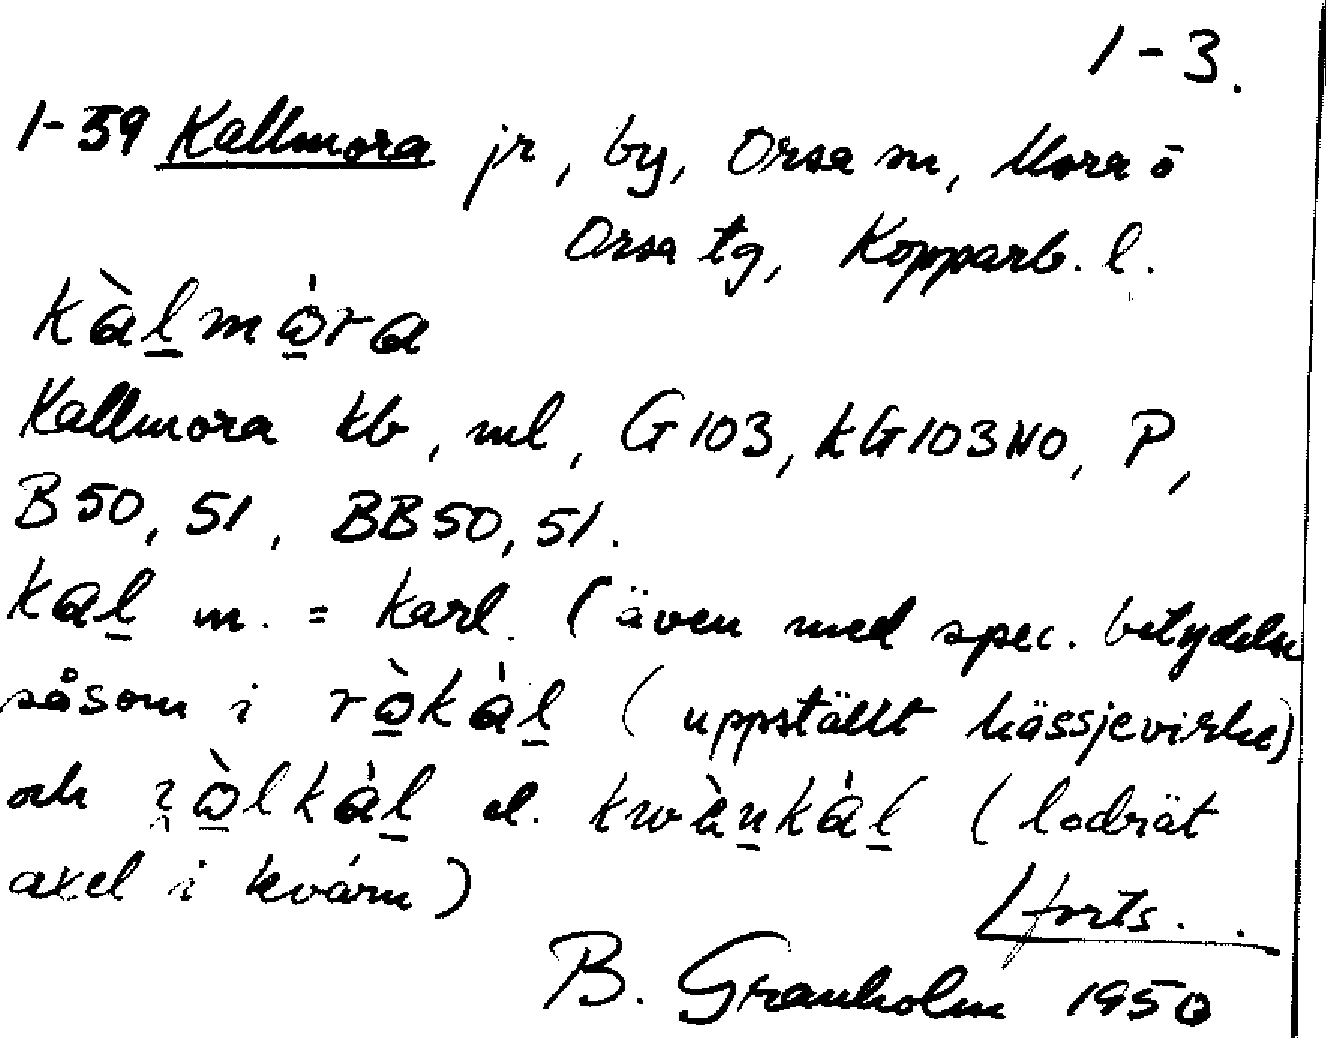 1-3.
1-39 Kallmora jr, by, Orsa sn, Mora o
Orsa tg, Kopparb. l.
kàl̠mò̠ra
Kallmora kb, ml, G103, KG103NO, P,
B50, 51, BB50, 51.
kal̠ m. = karl. (även med spec. betydelse
såsom i rò̠kál̠ (uppställt hässjevirke)
och kál̠ el. kwàn̠kál̠ (lodrät
axel i kvarn)
forts.
B. Granholm 1950